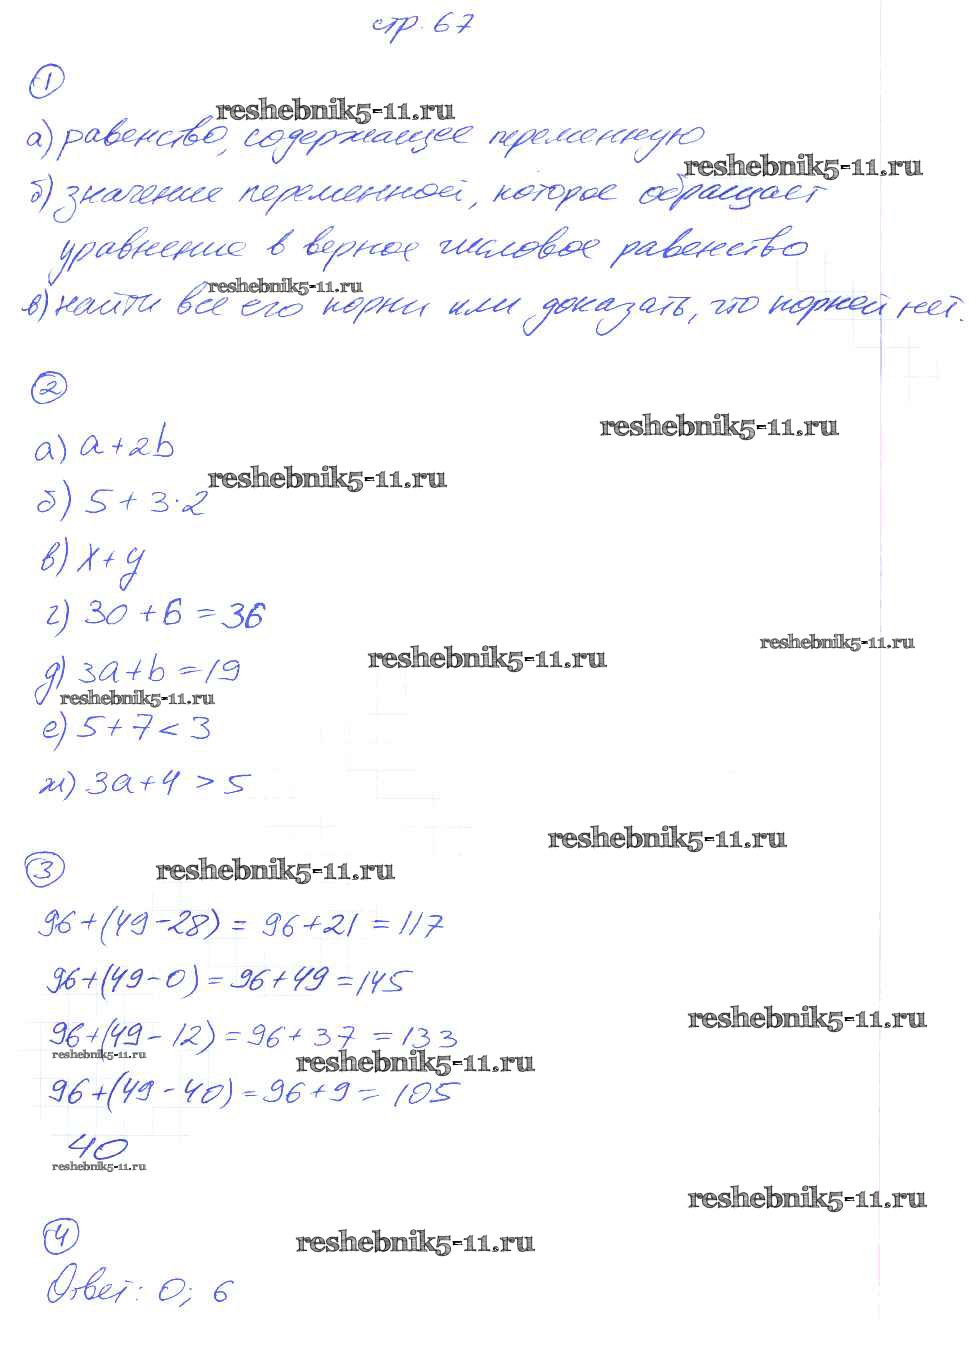 стр. 67
1
reshebnik5-11.ru
а) равенство, содержащее переменную
reshebnik5-11.ru
б) значение переменной, которое обращает
уравнение в верное числовое равенство
reshebnik5-11.ru
в) найти все его корни или доказать, что корней нет.
2
reshebnik5-11.ru
а) a + 2b
reshebnik5-11.ru
б) 5 + 3 · 2
в) x + y
г) 30 + 6 = 36
reshebnik5-11.ru
reshebnik5-11.ru
д) 3a + b = 19
reshebnik5-11.ru
е) 5 + 7 < 3
ж) 3a + 4 > 5
reshebnik5-11.ru
3
reshebnik5-11.ru
96 + (49 - 28) = 96 + 21 = 117
96 + (49 - 0) = 96 + 49 = 145
reshebnik5-11.ru
96 + (49 - 12) = 96 + 37 = 133
reshebnik5-11.ru
reshebnik5-11.ru
96 + (49 - 40) = 96 + 9 = 105
40
reshebnik5-11.ru
reshebnik5-11.ru
4
reshebnik5-11.ru
Ответ: 0; 6